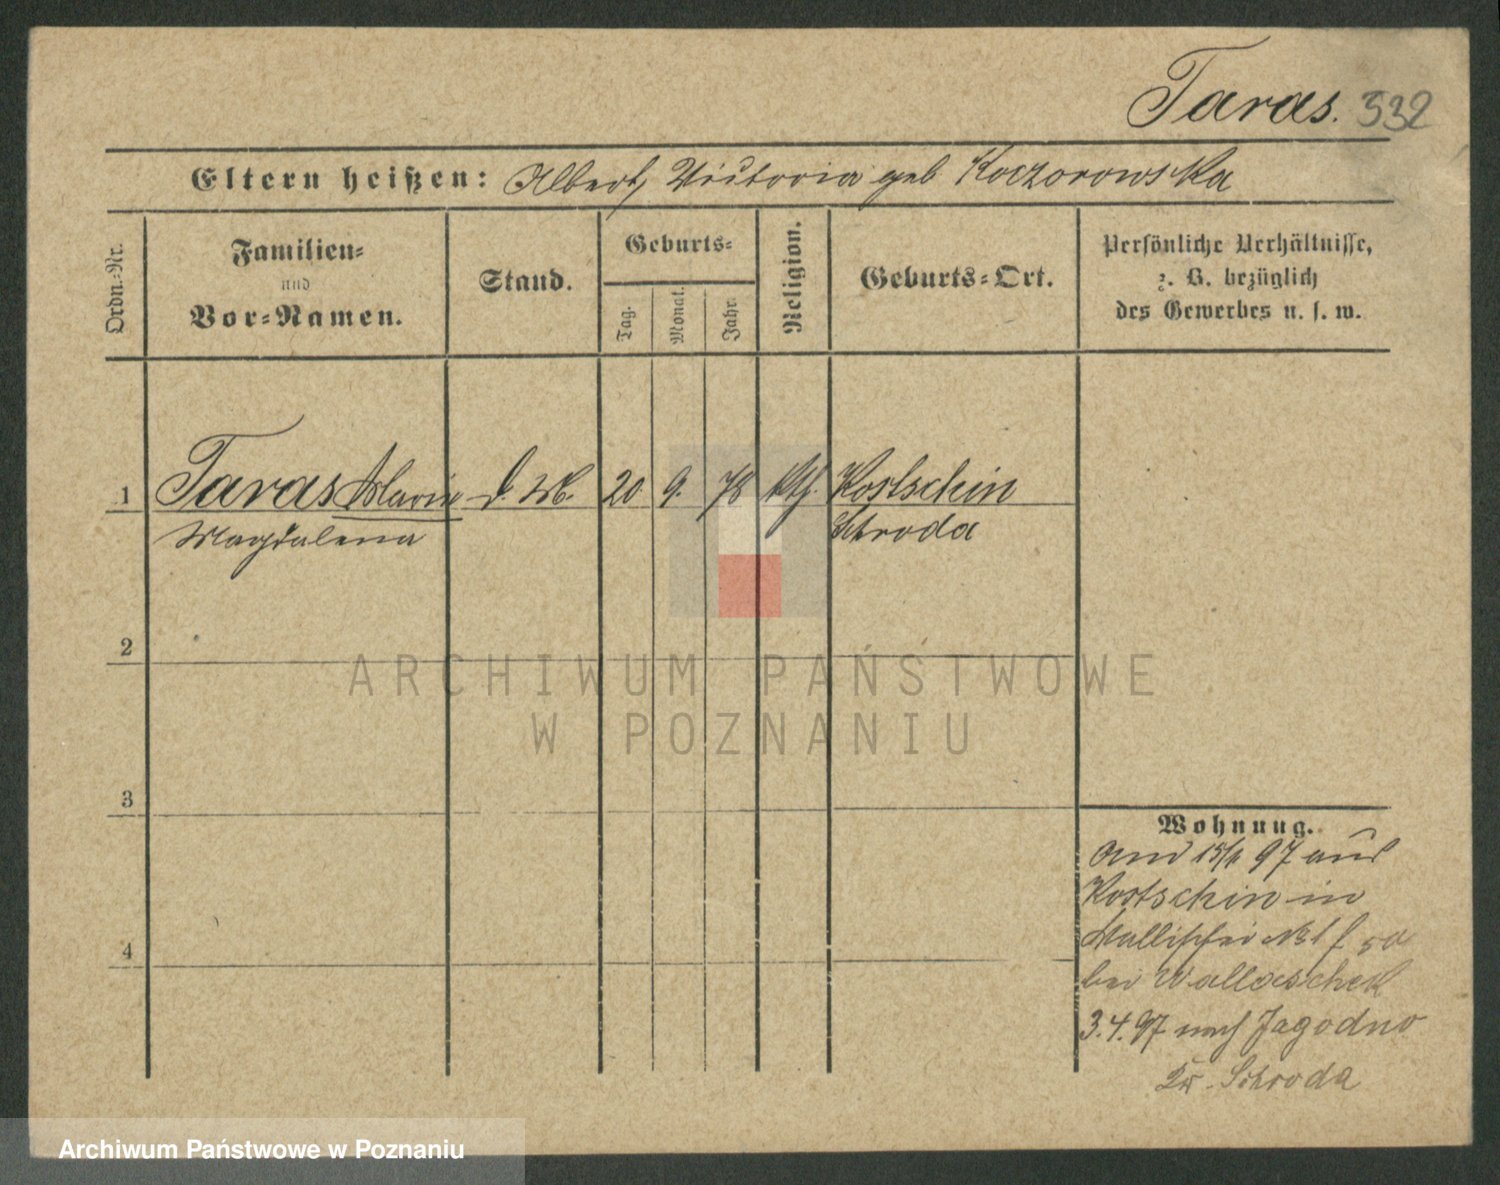 Taras. 532
Eltern heißen: Albert, Victoria geb Koczorowska
Ordn.-Nr.
Familien-
und
Vor-Namen.
Stand.
Geburts-
Tag.
Monat.
Jahr.
Religion.
Geburts-Ort.
Persönliche Verhältnisse,
z. B. bezüglich
des Gewerbes u. s. w.
1 Taras Marie D. M. 20 9. 78 kth. Kostschin
Magdalena Schroda
2
3
4
Wohnung.
15/1 97 aus
Kostschin in
Wallischei No 1
bei Wallaschek
3.4.97 nach Jagodno
Kr. Schroda
ARCHIWUM PAŃSTWOWE
W POZNANIU
Archiwum Państwowe w Poznaniu